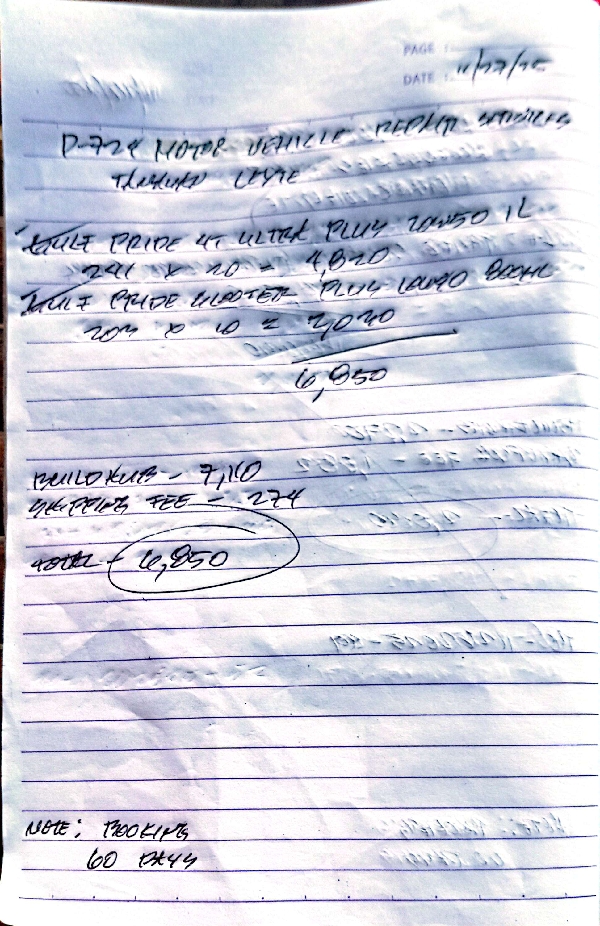 PAGE :
DATE : 11/27/25
P-724 MOTOR VEHICLE REPAIR SERVICES
TANAUAN LEYTE
GULF PRIDE 4T ULTRA PLUS 20W50 1L
241 x 20 = 4,820
GULF PRIDE SCOOTER PLUS 10W40 800ML
203 x 10 = 2,030
6,850
BUILDHUB - 7,110
SHIPPING FEE - 274
TOTAL - 6,850
NOTE: BOOKING
60 DAYS